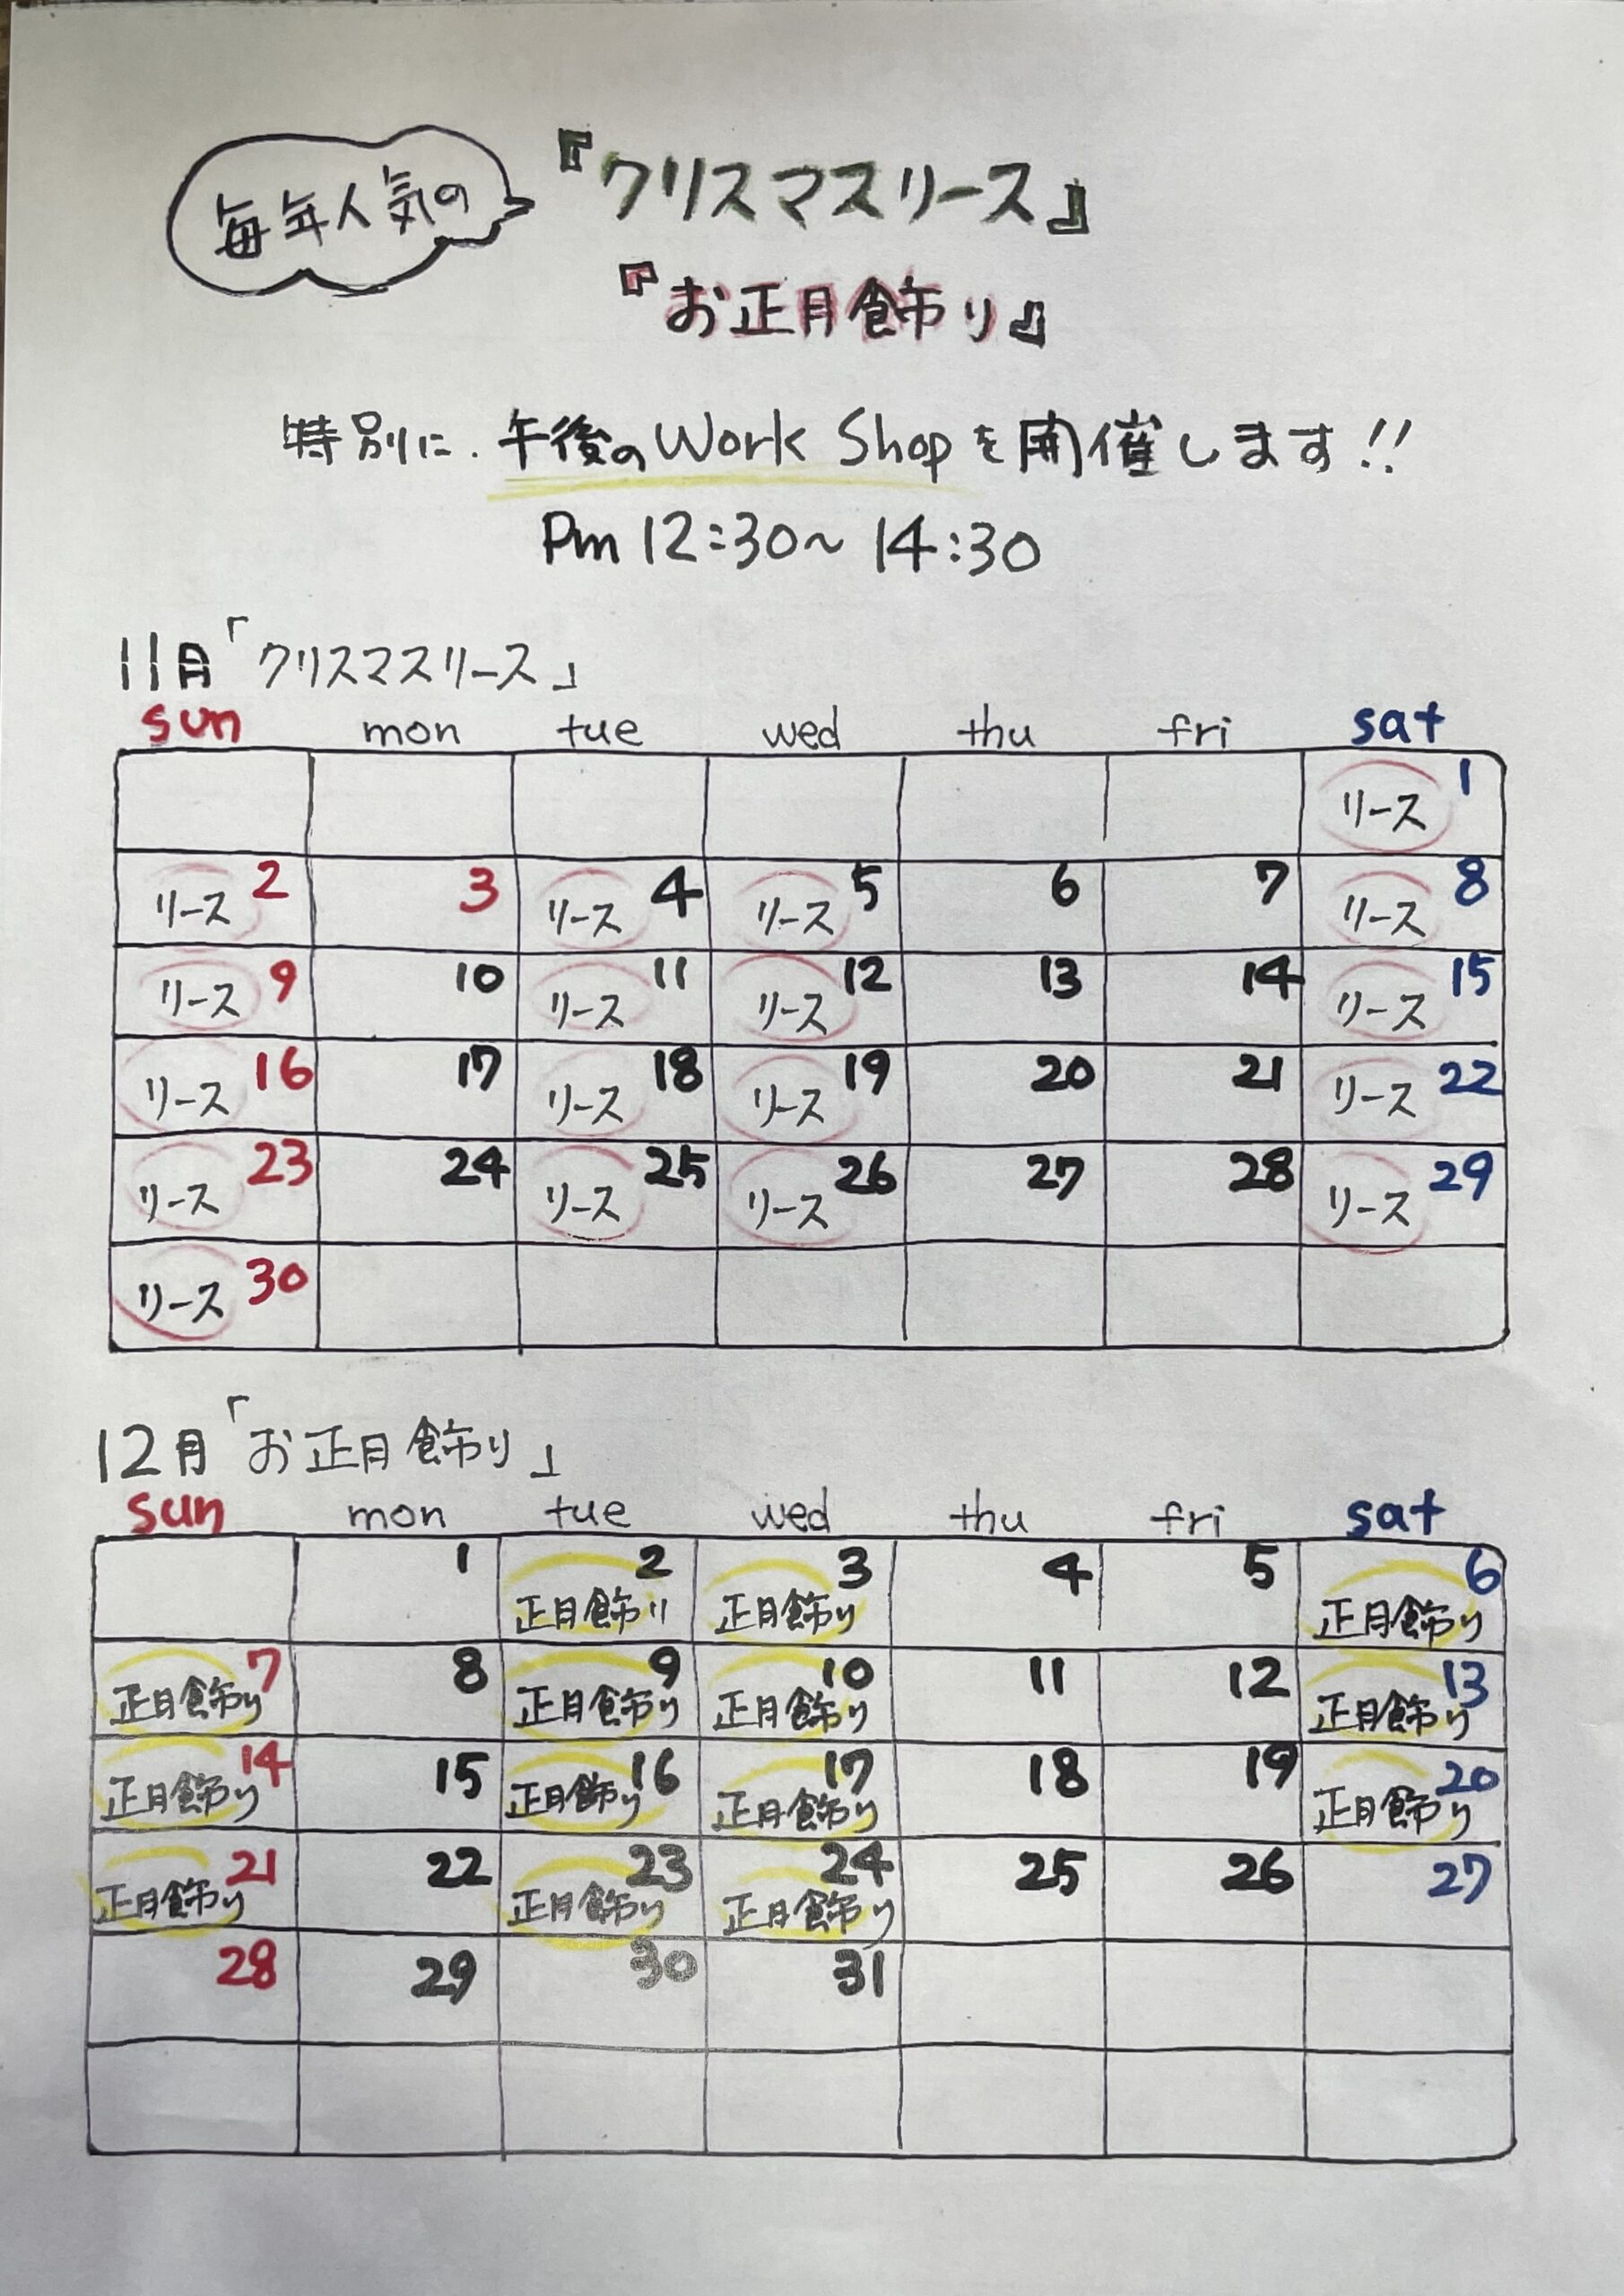 毎年人気の
『クリスマスリース』
『お正月飾り』
特別に、午後のWork Shopを開催します!!
Pm 12:30〜14:30
11月「クリスマスリース」
sun mon tue wed thu fri sat
1 リース
2 リース 3 4 リース 5 リース 6 7 8 リース
9 リース 10 11 リース 12 リース 13 14 15 リース
16 リース 17 18 リース 19 リース 20 21 22 リース
23 リース 24 25 リース 26 リース 27 28 29 リース
30 リース
12月「お正月飾り」
sun mon tue wed thu fri sat
1 2 正月飾り 3 正月飾り 4 5 6 正月飾り
7 正月飾り 8 9 正月飾り 10 正月飾り 11 12 13 正月飾り
14 正月飾り 15 16 正月飾り 17 正月飾り 18 19 20 正月飾り
21 正月飾り 22 23 正月飾り 24 正月飾り 25 26 27
28 29 30 31